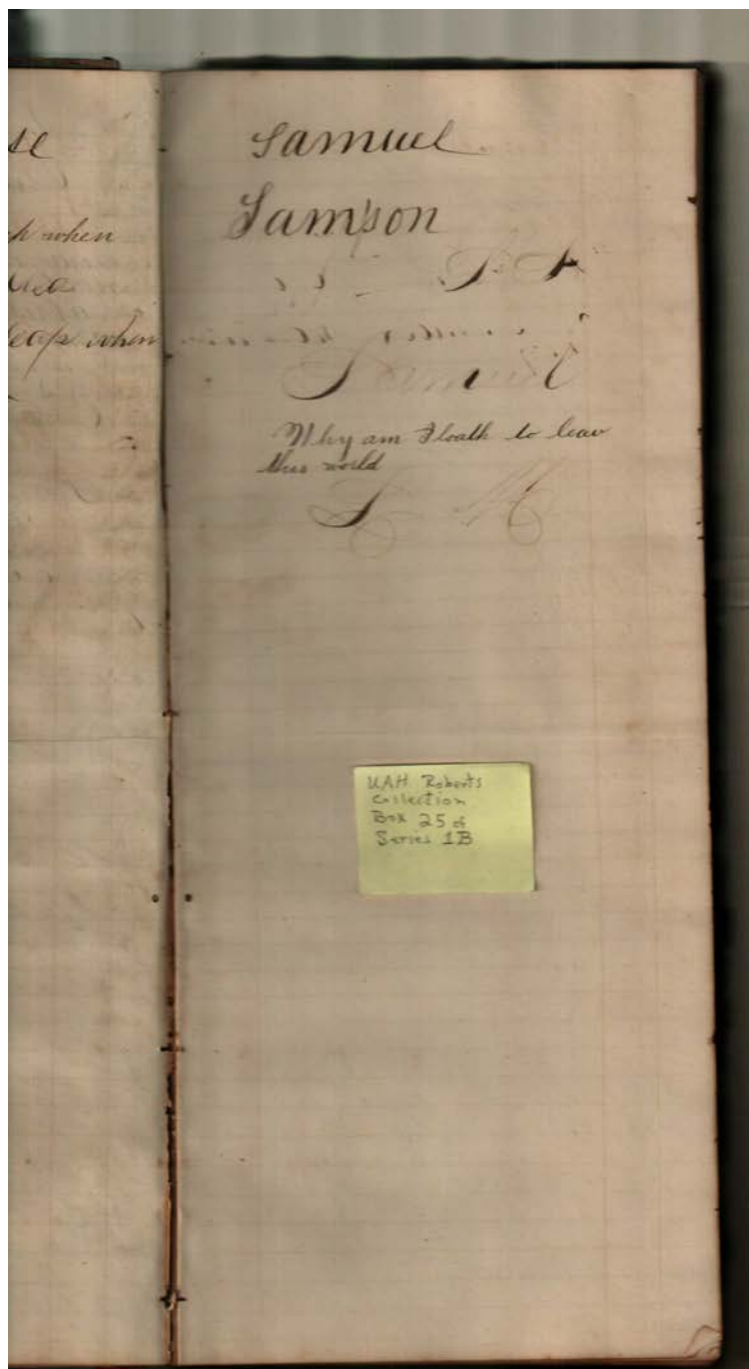 h when
leap when
Samuel
Sampson
Samuel
Why am I loath to leav
this world
S M
UAH Roberts
Collection
Box 25 of
Series 1B